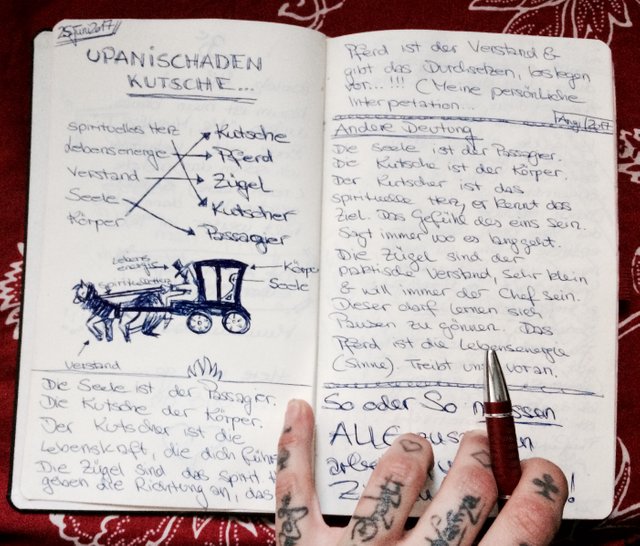 25. Juni 2017
UPANISCHADEN
KUTSCHE...
Spirituelles Herz
Lebensenergie
Verstand
Seele
Körper
Kutsche
Pferd
Zügel
Kutscher
Passagier
Lebens
energie
Spirituelles Herz
Körper
Seele
Verstand
Die Seele ist der Passagier.
Die Kutsche der Körper.
Der Kutscher ist die
Lebenskraft, die dich
Die Zügel sind das
geben die Richtung an, das
Pferd ist der Verstand &
gibt das Durchsetzen, loslegen
vor...!!! (Meine persönliche
Interpretation...
Aug. 2017
Andere Deutung
Die Seele ist der Passagier.
Die Kutsche ist der Körper.
Der Kutscher ist das
spirituelle Herz, er kennt das
Ziel. Das Gefühl des eins sein.
Sagt immer wo es langgeht.
Die Zügel sind der
praktische Verstand, sehr klein
& will immer der Chef sein.
Dieser darf lernen sich
Pausen zu gönnen. Das
Pferd ist die Lebensenergie
(Sinne). Treibt uns voran.
So oder So müssen
ALLE